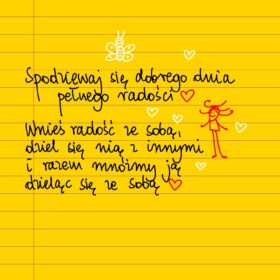 Spodziewaj się dobrego dnia
pełnego radości
Wnieś radość ze sobą,
dziel się nią z innymi
i razem mnóżmy ją
dzieląc się ze sobą